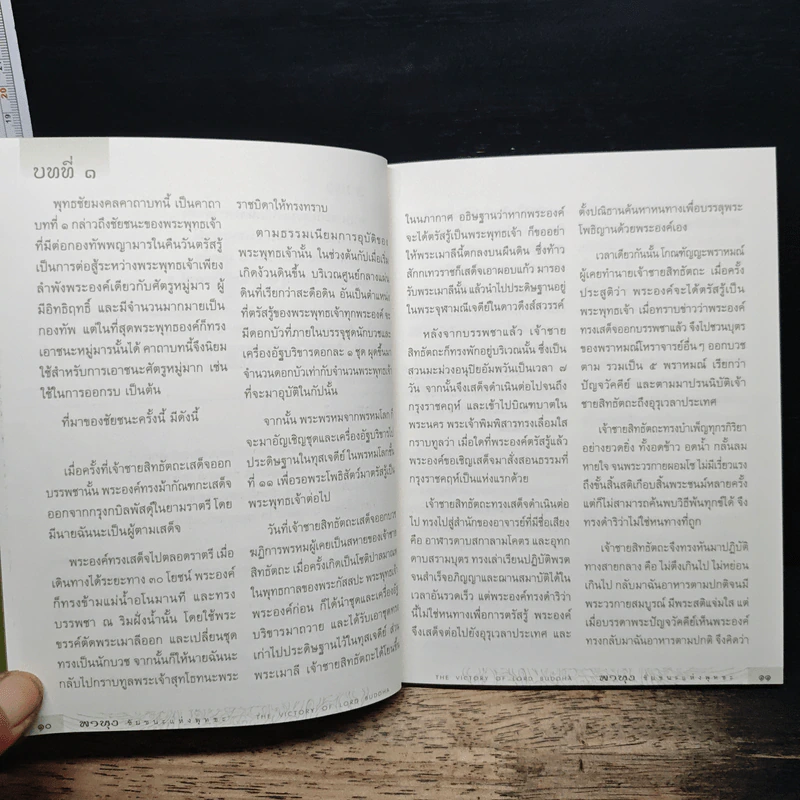 บทที่ ๑
พุทธชัยมงคลคาถาบทนี้ เป็นคาถา
บทที่ ๑ กล่าวถึงชัยชนะของพระพุทธเจ้า
ที่มีต่อกองทัพพญามารในคืนวันตรัสรู้
เป็นการต่อสู้ระหว่างพระพุทธเจ้าเพียง
ลำพังพระองค์เดียวกับศัตรูหมู่มาร ผู้
มีอิทธิฤทธิ์ และมีจำนวนมากมายเป็น
กองทัพ แต่ในที่สุดพระพุทธองค์ก็ทรง
เอาชนะหมู่มารนั้นได้ คาถาบทนี้จึงนิยม
ใช้สำหรับการเอาชนะศัตรูหมู่มาก เช่น
ใช้ในการออกรบ เป็นต้น
ที่มาของชัยชนะครั้งนี้ มีดังนี้
เมื่อครั้งที่เจ้าชายสิทธัตถะเสด็จออก
บรรพชานั้น พระองค์ทรงม้ากัณฑกะเสด็จ
ออกจากกรุงกบิลพัสดุ์ในยามราตรี โดย
มีนายฉันนะเป็นผู้ตามเสด็จ
พระองค์ทรงเสด็จไปตลอดราตรี เมื่อ
เดินทางได้ระยะทาง ๓๐ โยชน์ พระองค์
ก็ทรงข้ามแม่น้ำอโนมานที และทรง
บรรพชา ณ ริมฝั่งน้ำนั้น โดยใช้พระ
ขรรค์ตัดพระเมาลีออก และเปลี่ยนชุด
ทรงเป็นนักบวช จากนั้นก็ให้นายฉันนะ
กลับไปกราบทูลพระเจ้าสุทโธทนะพระ
ราชบิดาให้ทรงทราบ
ตามธรรมเนียมการอุบัติของ
พระพุทธเจ้านั้น ในช่วงต้นกัปเมื่อเริ่ม
เกิดง้วนดินขึ้น บริเวณศูนย์กลางแผ่น
ดินที่เรียกว่าสะดือดิน อันเป็นตำแหน่ง
ที่ตรัสรู้ของพระพุทธเจ้าทุกพระองค์ จะ
มีดอกบัวที่ภายในบรรจุชุดนักบวชและ
เครื่องอัฐบริขารดอกละ ๑ ชุด ผุดขึ้นมา
จำนวนดอกบัวเท่ากับจำนวนพระพุทธเจ้า
ที่จะมาอุบัติในกัปนั้น
จากนั้น พระพรหมจากพรหมโลก ก็
จะมาอัญเชิญชุดและเครื่องอัฐบริขารไป
ประดิษฐานในทุสเจดีย์ ในพรหมโลกชั้น
ที่ ๑๑ เพื่อรอพระโพธิสัตว์มาตรัสรู้เป็น
พระพุทธเจ้าต่อไป
วันที่เจ้าชายสิทธัตถะเสด็จออกบวช
ฆฏิการพรหมผู้เคยเป็นสหายของเจ้าชาย
สิทธัตถะ เมื่อครั้งเกิดเป็นโชติปาลมาณพ
ในพุทธกาลของพระกัสสปะ พระพุทธเจ้า
พระองค์ก่อน ก็ได้นำชุดและเครื่องอัฐ
บริขารมาถวาย และได้รับเอาชุดทรง
เก่าไปประดิษฐานไว้ในทุสเจดีย์ ส่วน
พระเมาลี เจ้าชายสิทธัตถะได้โยนขึ้น
๑๐ พาหุง ชัยชนะแห่งพุทธะ THE VICTORY OF LORD BUDDHA
ในนภากาศ อธิษฐานว่าหากพระองค์
จะได้ตรัสรู้เป็นพระพุทธเจ้า ก็ขออย่า
ให้พระเมาลีนี้ตกลงบนผืนดิน ซึ่งท้าว
สักกเทวราชก็เสด็จเอาผอบแก้ว มารอง
รับพระเมาลีนั้น แล้วนำไปประดิษฐานอยู่
ในพระจุฬามณีเจดีย์ในดาวดึงส์สวรรค์
หลังจากบรรพชาแล้ว เจ้าชาย
สิทธัตถะก็ทรงพักอยู่บริเวณนั้น ซึ่งเป็น
สวนมะม่วงอนุปิยอัมพวันเป็นเวลา ๗
วัน จากนั้นจึงเสด็จดำเนินต่อไปจนถึง
กรุงราชคฤห์ และเข้าไปบิณฑบาตใน
พระนคร พระเจ้าพิมพิสารทรงเลื่อมใส
กราบทูลว่า เมื่อใดที่พระองค์ตรัสรู้แล้ว
พระองค์ขอเชิญเสด็จมาสั่งสอนธรรมที่
กรุงราชคฤห์เป็นแห่งแรกด้วย
เจ้าชายสิทธัตถะทรงเสด็จดำเนินต่อ
ไป ทรงไปสู่สำนักของอาจารย์ที่มีชื่อเสียง
คือ อาฬารดาบสกาลามโคตร และอุทก
ดาบสรามบุตร ทรงเล่าเรียนปฏิบัติพรต
จนสำเร็จอภิญญาและฌานสมาบัติได้ใน
เวลาอันรวดเร็ว แต่พระองค์ทรงดำริว่า
นี้ไม่ใช่หนทางเพื่อการตรัสรู้ พระองค์
จึงเสด็จต่อไปยังอุรุเวลาประเทศ และ
ตั้งปณิธานค้นหาหนทางเพื่อบรรลุพระ
โพธิญาณด้วยพระองค์เอง
เวลาเดียวกันนั้น โกณฑัญญะพราหมณ์
ผู้เคยทำนายเจ้าชายสิทธัตถะ เมื่อครั้ง
ประสูติว่า พระองค์จะได้ตรัสรู้เป็นพระ
พุทธเจ้า เมื่อทราบข่าวว่าพระองค์
ทรงเสด็จออกบรรพชาแล้ว จึงไปชวนบุตร
ของพราหมณ์โหราจารย์อื่นๆ ออกบวช
ตาม รวมเป็น ๕ พราหมณ์ เรียกว่า
ปัญจวัคคีย์ และตามมาปรนนิบัติเจ้า
ชายสิทธัตถะถึงอุรุเวลาประเทศ
เจ้าชายสิทธัตถะทรงบำเพ็ญทุกรกิริยา
อย่างยวดยิ่ง ทั้งอดข้าว อดน้ำ กลั้นลม
หายใจ จนพระวรกายผอมโซ ไม่มีเรี่ยวแรง
ถึงขั้นสิ้นสติเกือบสิ้นพระชนม์หลายครั้ง
แต่ก็ไม่สามารถค้นพบวิธีพ้นทุกข์ได้ จึง
ทรงดำริว่าไม่ใช่หนทางที่ถูก
เจ้าชายสิทธัตถะจึงทรงหันมาปฏิบัติ
ทางสายกลาง คือ ไม่ตึงเกินไป ไม่หย่อน
เกินไป กลับมาฉันอาหารตามปกติจนมี
พระวรกายสมบูรณ์ มีพระสติแจ่มใส แต่
เมื่อบรรดาพระปัจวัคคีย์เห็นพระองค์
ทรงกลับมาฉันอาหารตามปกติ จึงคิดว่า
THE VICTORY OF LORD BUDDHA พาหุง ชัยชนะแห่งพุทธะ ๑๑
19
20